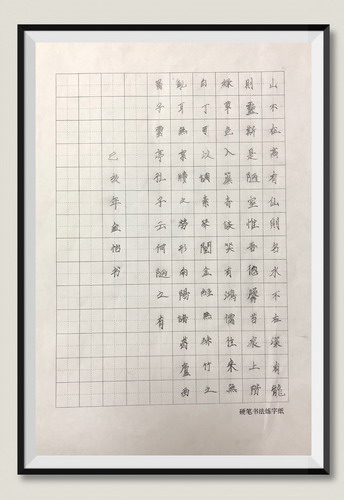 山不在高有仙則名水不在深有龍
則靈斯是陋室惟吾德馨苔痕上階
綠草色入簾青談笑有鴻儒往來無
白丁可以調素琴閱金經無絲竹之
亂耳無案牘之勞形南陽諸葛廬西
蜀子雲亭孔子云何陋之有
己亥年书
硬笔书法练字纸